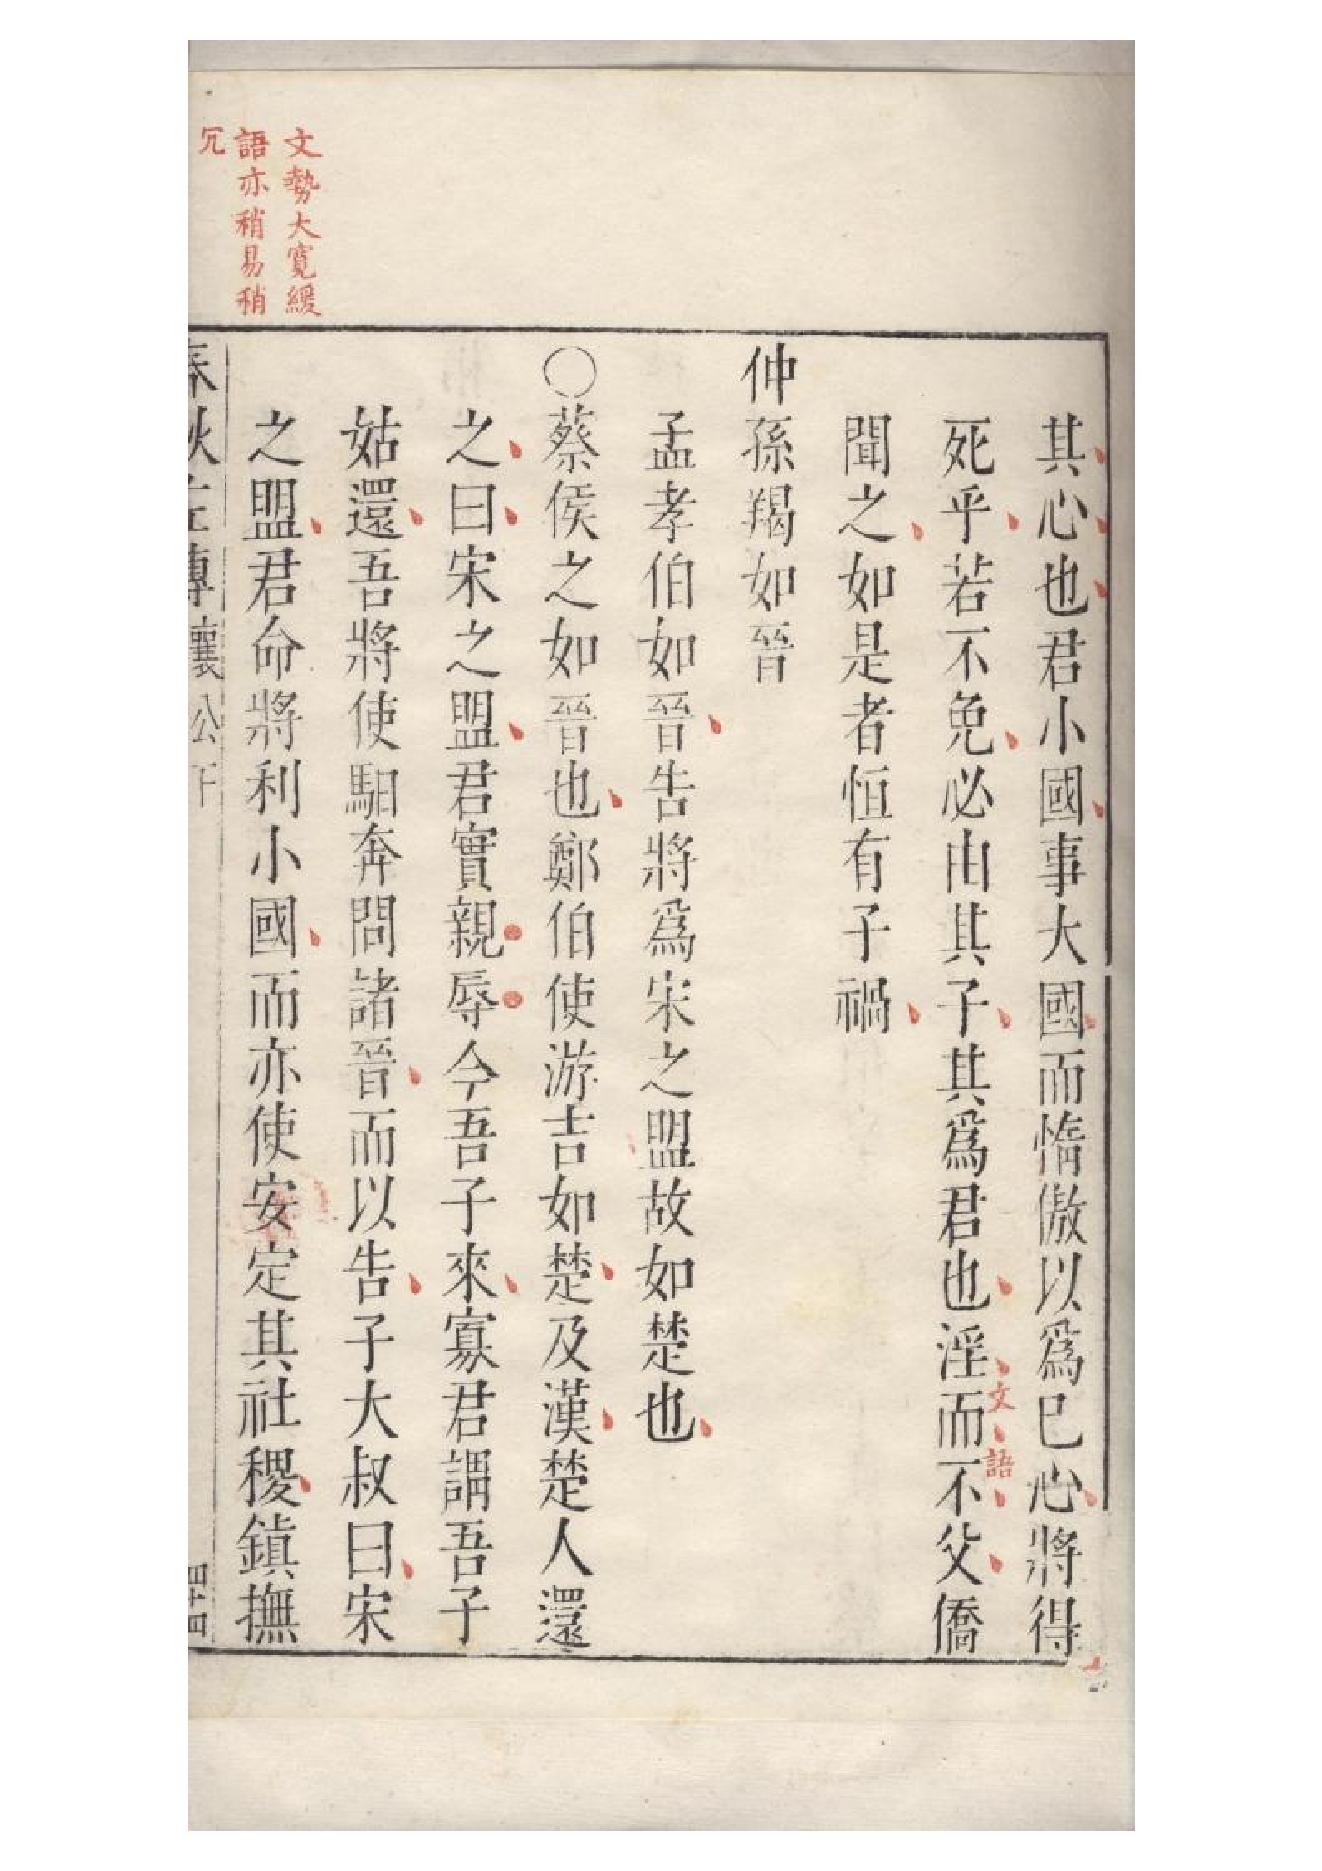 其心也君小國事大國而惰傲以爲已心將得
死乎若不免必由其子其爲君也淫而不父僑
文語
聞之如是者恒有子禍
仲孫羯如晉
孟孝伯如晉告將爲宋之盟故如楚也
〇蔡侯之如晉也鄭伯使游吉如楚及漢楚人還
之曰宋之盟君實親辱今吾子來寡君謂吾子
姑還吾將使馹奔問諸晉而以告子大叔曰宋
之盟君命將利小國而亦使安定其社稷鎮撫
文勢大寬緩
語亦稍易稍
冗
春秋左傳襄公下
四十四